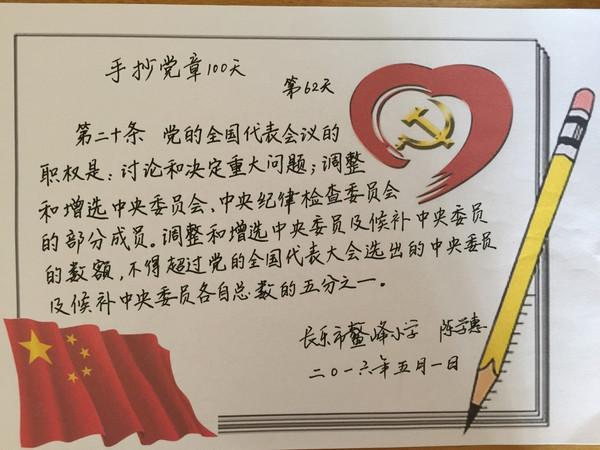 手抄党章100天
第62天
第二十条 党的全国代表会议的
职权是：讨论和决定重大问题；调整
和增选中央委员会、中央纪律检查委员会
的部分成员。调整和增选中央委员及候补中央委员
的数额，不得超过党的全国代表大会选出的中央委员
及候补中央委员各自总数的五分之一。
长乐市鳌峰小学 陈学惠
二〇一六年五月一日